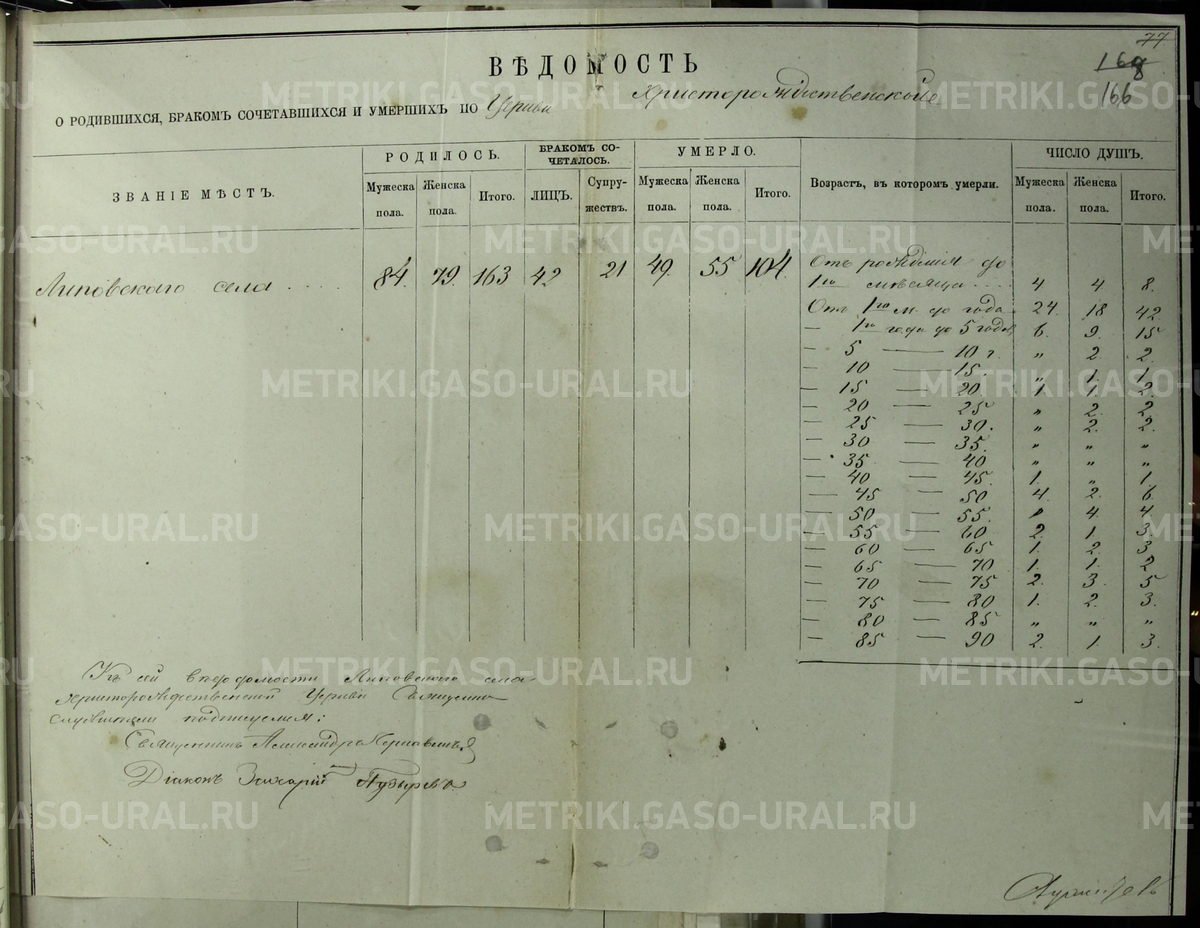 77
168
166
ВѢДОМОСТЬ
О РОДИВШИХСЯ, БРАКОМЪ СОЧЕТАВШИХСЯ И УМЕРШИХЪ ПО Церкви Христорождественской
ЗВАНІЕ МѢСТЪ. РОДИЛОСЬ. БРАКОМЪ СО-ЧЕТАЛОСЬ. УМЕРЛО. Возрастъ, въ котором умерли. ЧИСЛО ДУШЪ.
Мужеска пола. Женска пола. Итого. ЛИЦЪ. Супру-жествъ. Мужеска пола. Женска пола. Итого. Мужеска пола. Женска пола. Итого.
Липовскаго села . . . . 84 79 163 42 21 49 55 104
Отъ рожденія до
1го мѣсяца . . . . 4 4 8.
Отъ 1го м. до года. 24. 18 42
— 1го года до 5 годъ 6 9. 15
— 5 — 10 г. „ 2. 2.
— 10 — 15. „ 1. 1.
— 15 — 20. 1 1 2.
— 20 — 25 „ 2. 2
— 25 — 30. „ 2. 2.
— 30 — 35. „ „ „
— 35 — 40 „ „ „
— 40 — 45. 1. „ 1.
— 45 — 50 4. 2. 6.
— 50 — 55. „ 4. 4
— 55 — 60. 2. 1 3.
— 60 — 65 1. 2. 3.
— 65 — 70 1. 1. 2
— 70 — 75 2. 3. 5
— 75 — 80 1. 2. 3.
— 80 — 85 „ „ „
— 85 — 90 2. 1. 3.
Къ сей вѣдомости Липовскаго села
Христорождественской Церкви Священно
служители подписуемся:
Священникъ Александръ
Діаконъ Захарій Пузыревъ
METRIKI.GASO-URAL.RU